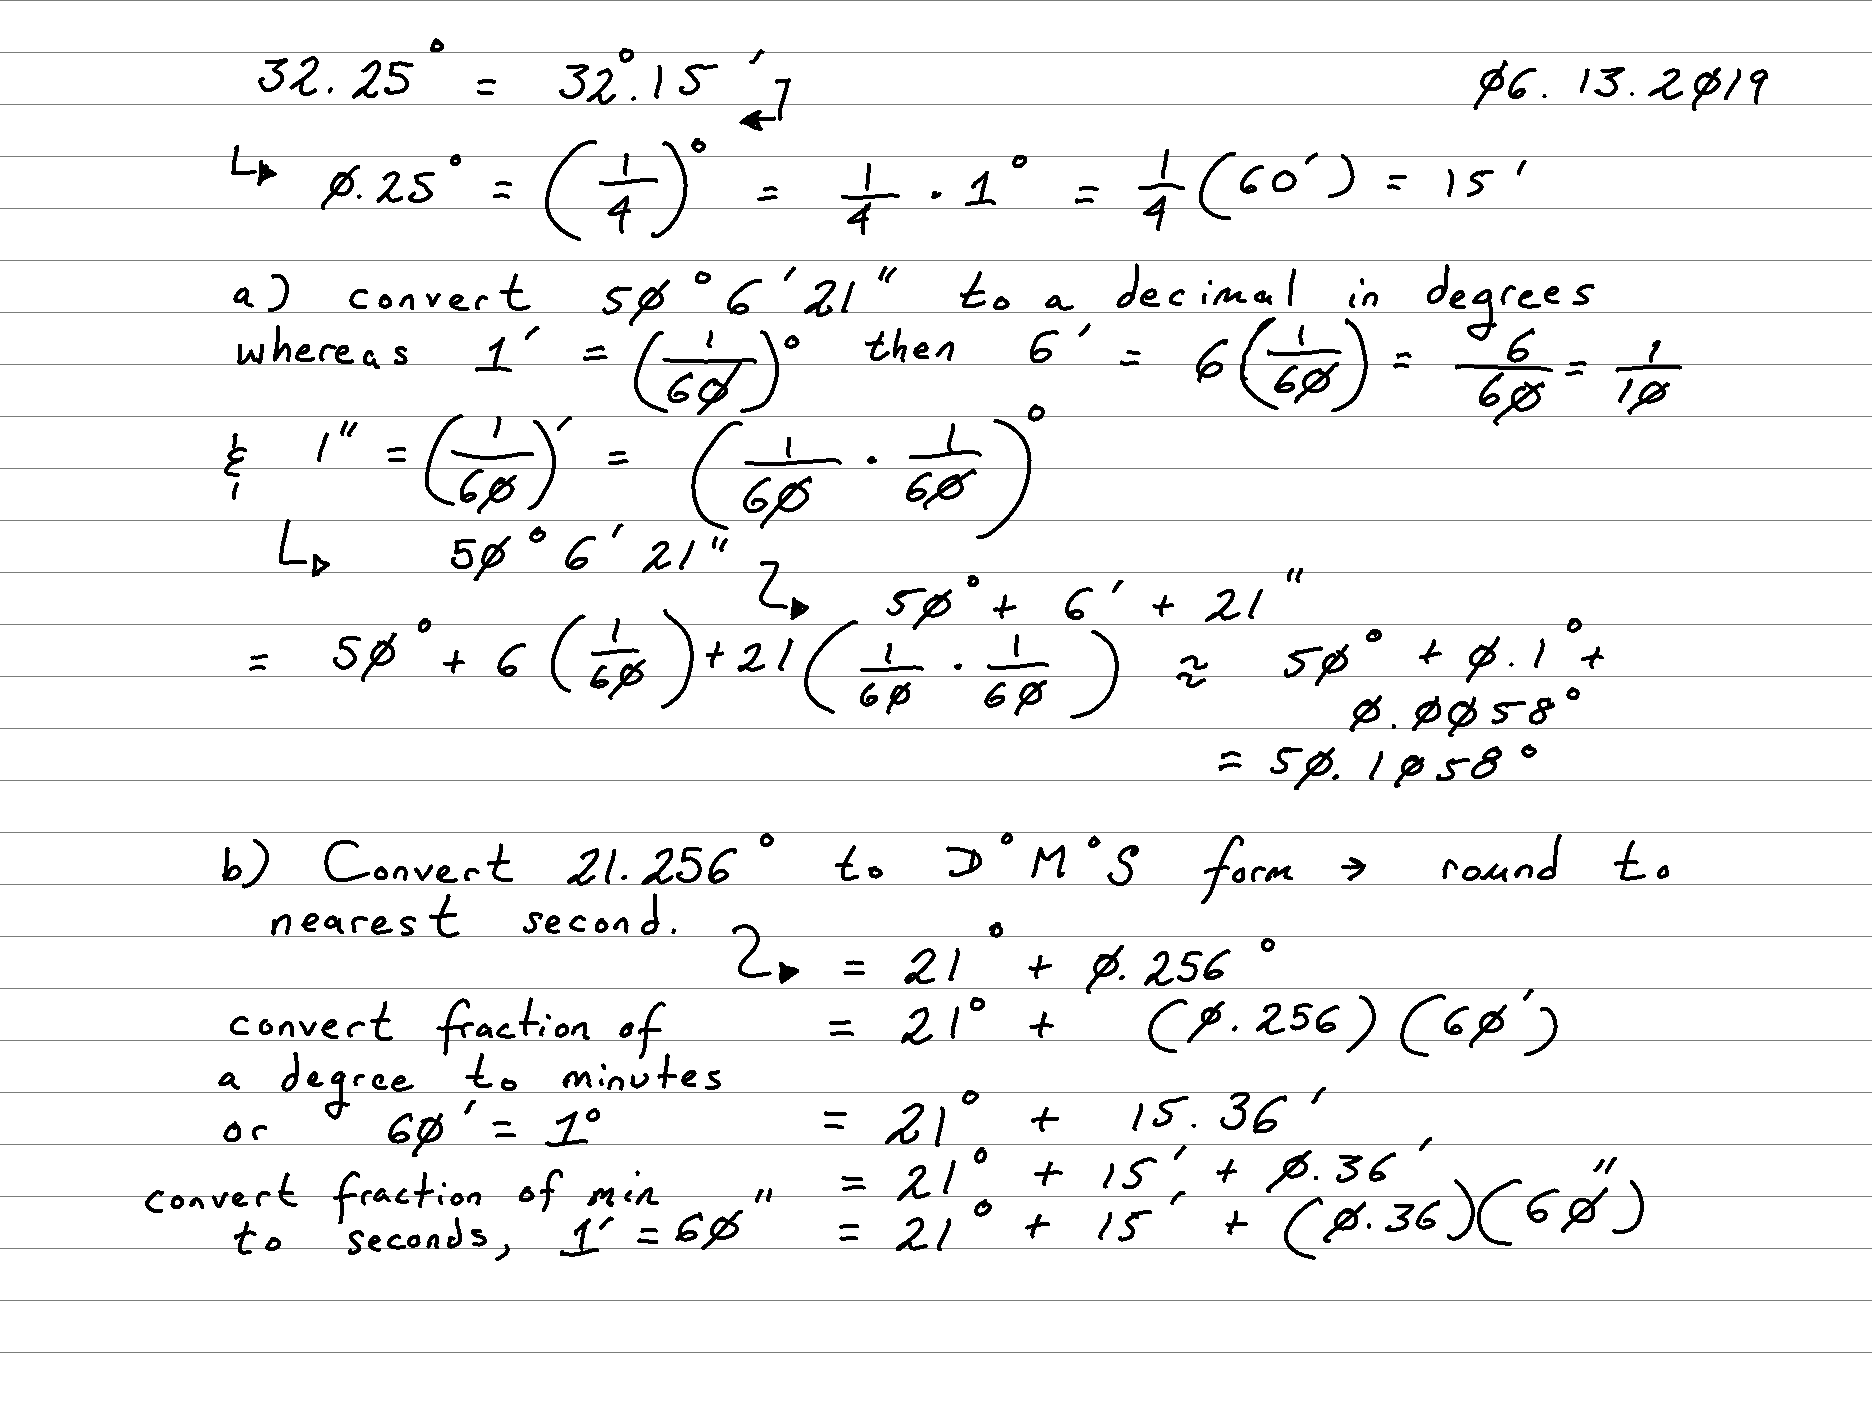 32.25° = 32°.15′ 06.13.2019
↳ 0.25° = (1/4)° = 1/4 · 1° = 1/4 (60′) = 15′
a) convert 50°6′21″ to a decimal in degrees
whereas 1′ = (1/60)° then 6′ = 6(1/60) = 6/60 = 1/10
& 1″ = (1/60)′ = (1/60 · 1/60)°
↳ 50° 6′ 21″
50° + 6′ + 21″
= 50° + 6(1/60) + 21(1/60 · 1/60) ≈ 50° + 0.1° +
0.0058°
= 50.1058°
b) Convert 21.256° to D°M°S form → round to
nearest second.
= 21° + 0.256°
convert fraction of = 21° + (0.256)(60′)
a degree to minutes
or 60′ = 1° = 21° + 15.36′
= 21° + 15′ + 0.36′
convert fraction of min
to seconds, 1′ = 60″ = 21° + 15′ + (0.36)(60″)